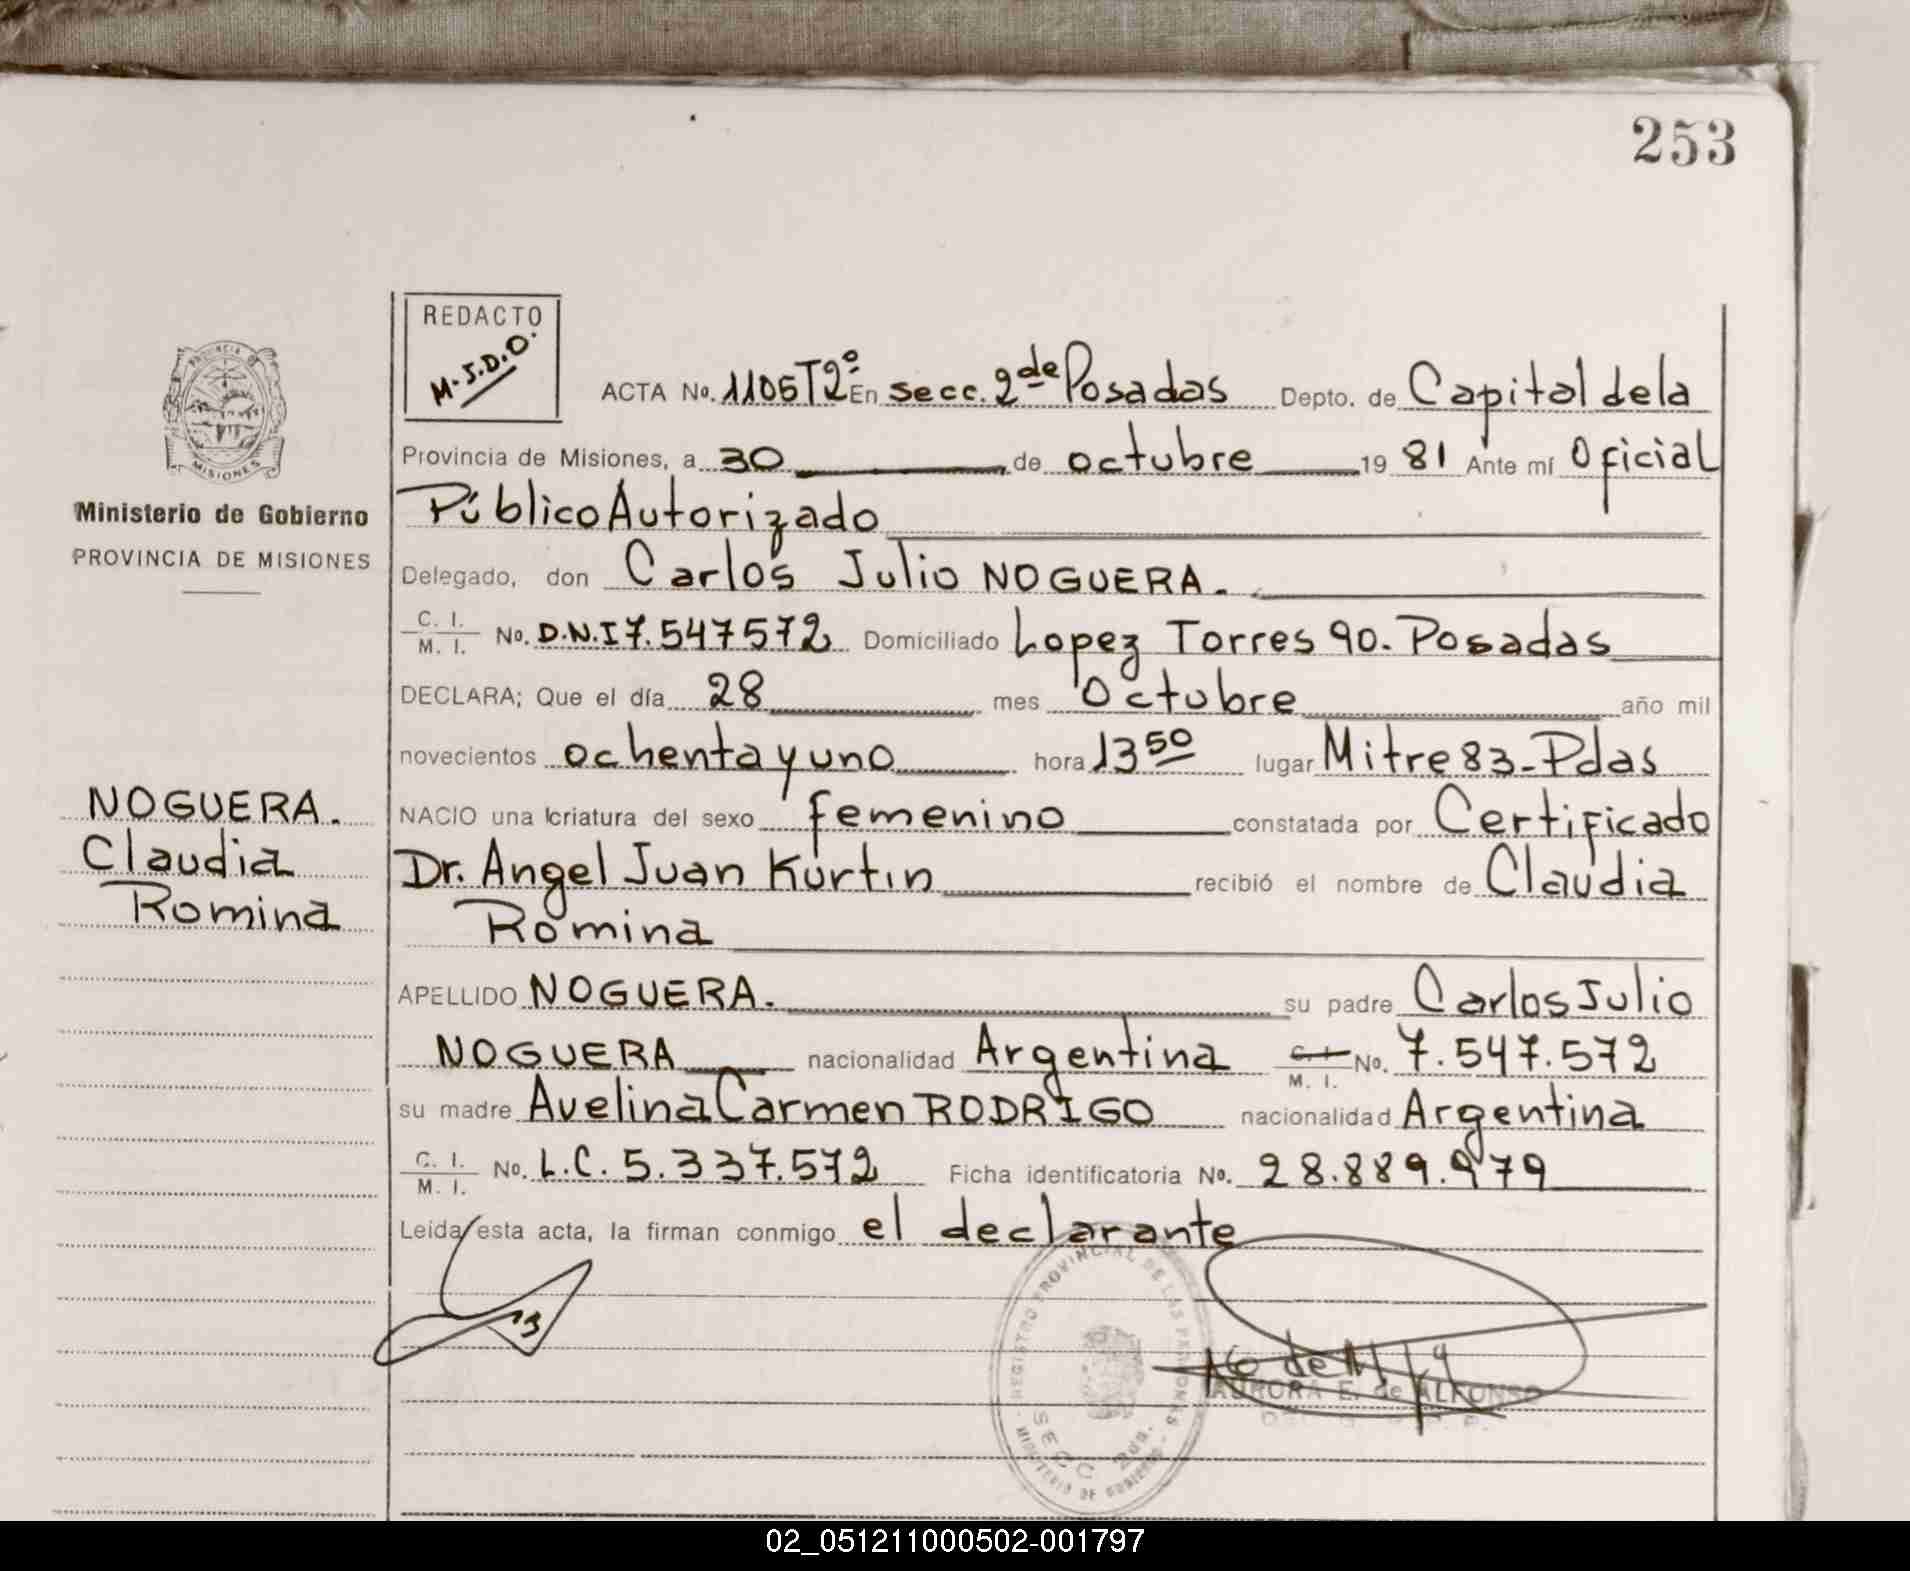 253
REDACTO
M.J.D.O.
ACTA No. 1105 T2º En secc. 2da de Posadas Depto. de Capital de la
Provincia de Misiones, a 30 de octubre 19 81 Ante mí Oficial
Público Autorizado
Delegado, don Carlos Julio NOGUERA.
C. I. M. I. No. D.N.I 7.547572 Domiciliado Lopez Torres 90. Posadas
DECLARA; Que el día 28 mes Octubre año mil
novecientos ochenta y uno hora 13 50 lugar Mitre 83-Pdas
NACIO una criatura del sexo femenino constatada por Certificado
Dr. Angel Juan Kurtin recibió el nombre de Claudia
Romina
APELLIDO NOGUERA. su padre Carlos Julio
NOGUERA nacionalidad Argentina C. I. M. I. No. 7.547.572
su madre Avelina Carmen RODRIGO nacionalidad Argentina
C. I. M. I. No. L.C. 5.337.572 Ficha identificatoria No. 28.889.979
Leída esta acta, la firman conmigo el declarante
PROVINCIA DE MISIONES
Ministerio de Gobierno
PROVINCIA DE MISIONES
NOGUERA.
Claudia
Romina
REGISTRO PROVINCIAL DE LAS PERSONAS
SECC 2da.
MINISTERIO DE GOBIERNO
AURORA E. de ALFONSO
02_051211000502-001797